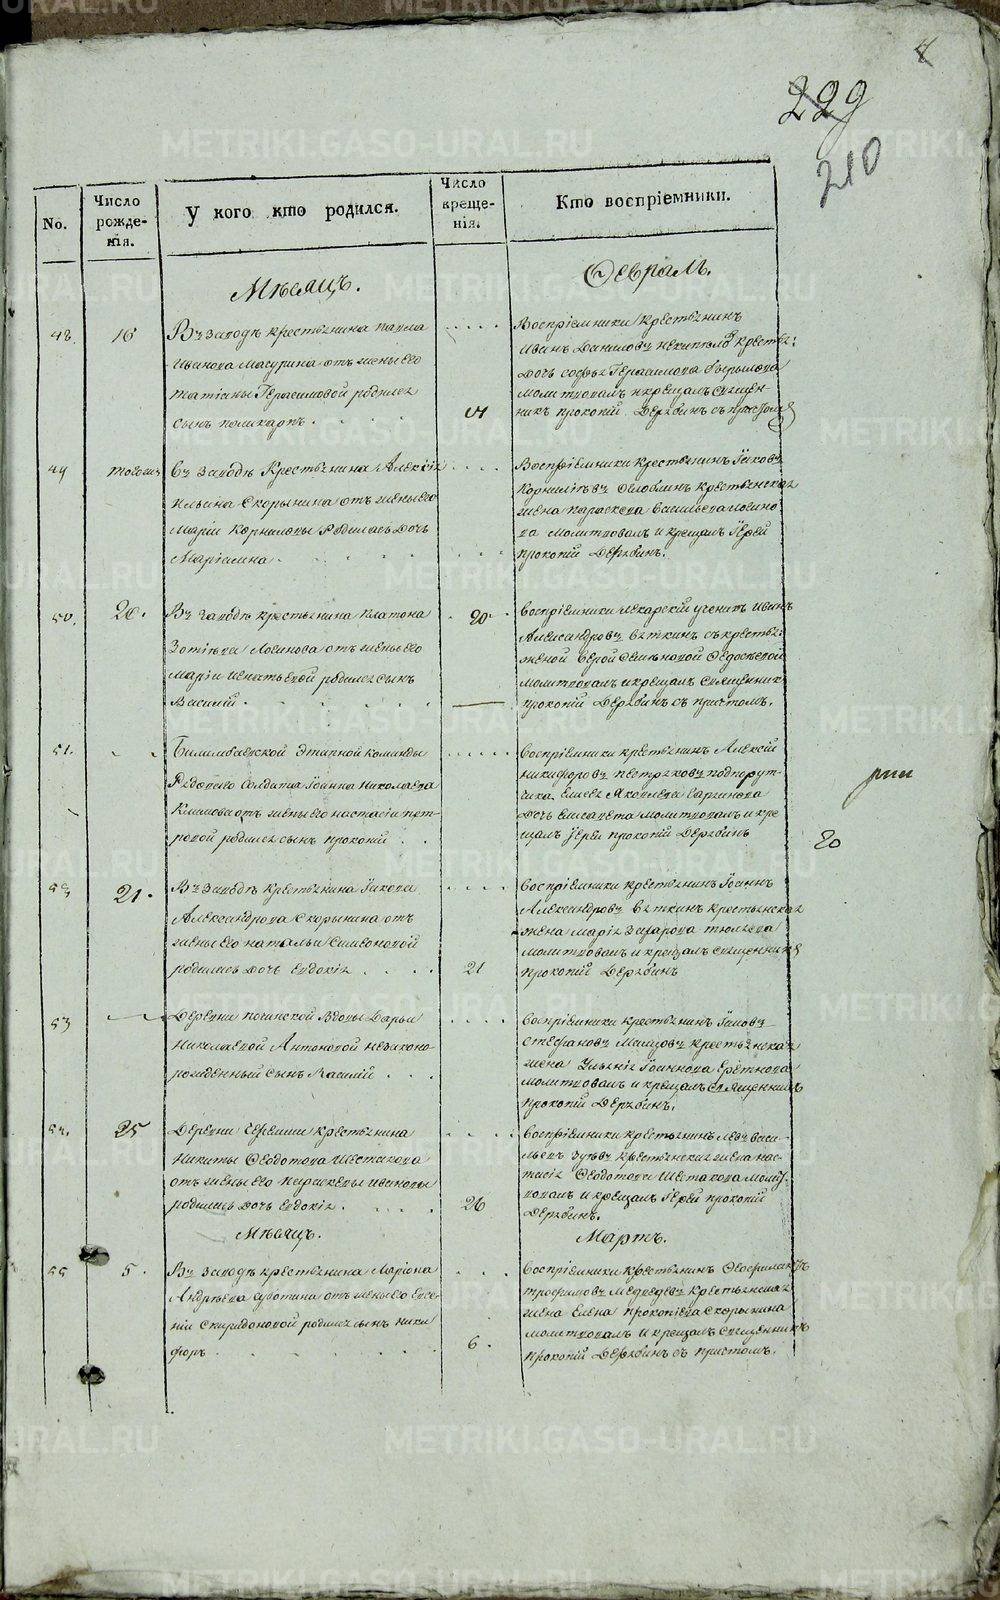 4
229
210
No.
Число рожденія.
У кого кто родился.
Число крещенія.
Кто воспріемники.
Мѣсяцъ.
Февраль.
48.
16
Въ Заводѣ крестьянина Павла
Иванова Масурина отъ жены его
Татіаны Герасимовой родился
сынъ Поликарпъ.
Воспріемники крестьянинъ
Иванъ Даниловъ крестья:
дочь Софья Герасимова
молитвовалъ и крещалъ Священ-
никъ Прокопій Дерябинъ съ причтомъ
49
тогожъ
Въ Заводѣ Крестьянина Алексія
Ильина Скорынина отъ жены его
Маріи Корниловы родилась дочь
Маріамна.
Воспріемники крестьянинъ Іаковъ
Корниліевъ крестьянская
жена Параскева Васильева
молитвовалъ и крещалъ Іерей
Прокопій Дерябинъ.
50.
20.
Въ Заводѣ крестьянина Платона
Зотіева Логинова отъ жены его
Маріи Игнатьевой родился сынъ
Василій.
20
Воспріемники лекарскій ученикъ Иванъ
Александровъ Вяткинъ съ крестья:
женой Верой Семьновой Федосѣевой
молитвовалъ и крещалъ Священникъ
Прокопій Дерябинъ съ причтомъ.
51.
Билимбаевской Этапной Команды
Рядового Солдата Іоанна Николаева
Климова отъ жены его Настасіи Пет-
ровой родился сынъ Прокопій
Воспріемники крестьянинъ Алексій
Никифоровъ Пестряковъ подпорут-
чика Елисея Яковлева
дочь Елисавета молитвовалъ и кре
щалъ Іерей Прокопій Дерябинъ
20
52
21.
Въ Заводѣ крестьянина Іакова
Александрова Скорынина отъ
жены его Натальи Симеоновой
родилась дочь Евдокія
21
Воспріемники крестьянинъ Іоаннъ
Александровъ Вяткинъ крестьянская
жена Марія Захарова
молитвовалъ и крещалъ священникъ
Прокопій Дерябинъ
53
Деревни Починской Вдовы Дарьи
Николаевой Антоновой незаконо-
рожденный сынъ Василій
Воспріемники крестьянинъ Іаковъ
Стефановъ крестьянская
жена Іоаннова
молитвовалъ и крещалъ Священникъ
Прокопій Дерябинъ.
54.
25
Деревни Черемши крестьянина
Никиты Феодотова Шестакова
отъ жены его Параскевы Ивановы
родилась дочь Евдокія.
26
Воспріемники крестьянинъ Левъ Васи-
льевъ Зуевъ крестьянская жена Нас-
тасія Феодотова Шестакова молит-
вовалъ и крещалъ Іерей Прокопій
Дерябинъ.
Мѣсяцъ.
Мартъ.
55
5.
Въ Заводѣ крестьянина Маріона
Андреева Субботина отъ жены его Евге-
ніи Спиридоновой родился сынъ Ники
форъ
6.
Воспріемники крестьянинъ Феофилактъ
Трофимовъ Медведевъ крестьянская
жена Елена Прокопіева Скорынина
молитвовалъ и крещалъ Священникъ
Прокопій Дерябинъ съ причтомъ.
METRIKI.GASO-URAL.RU